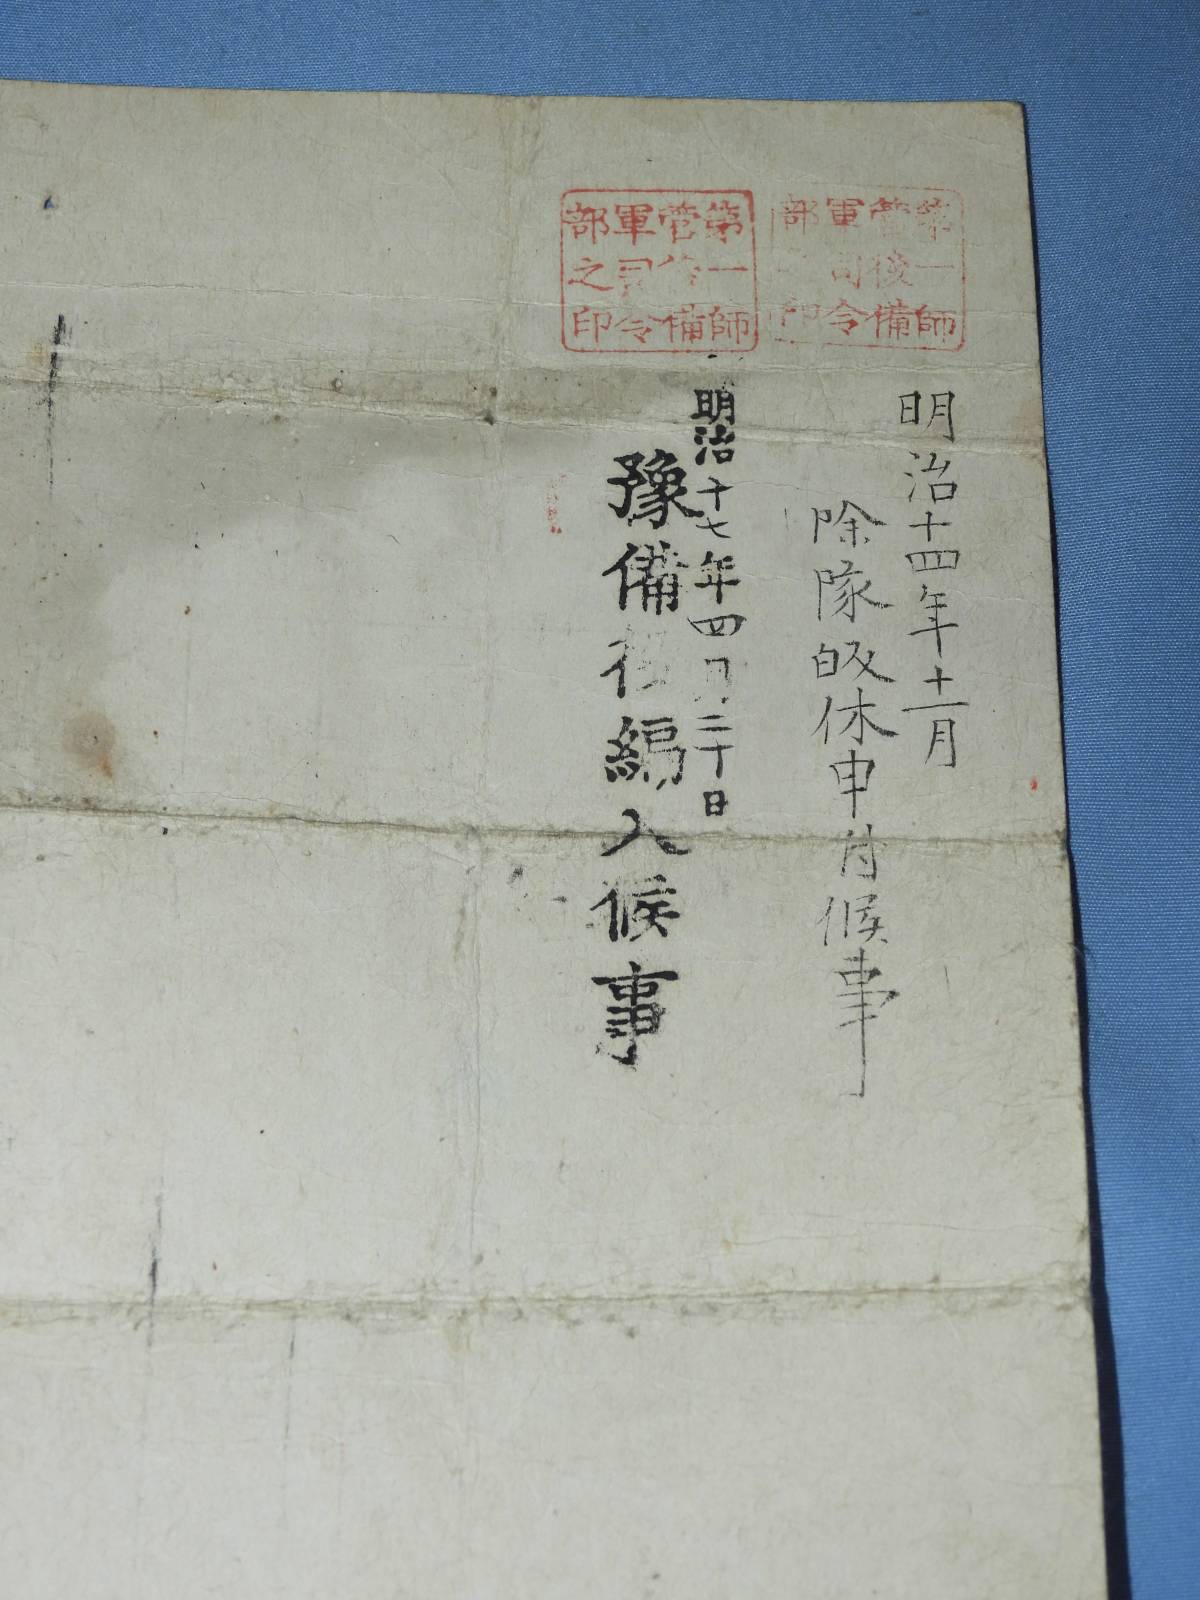 第一師
管後備
軍司令
部之印
明治十四年十二月
除隊皈休申付候事
第一師
管後備
軍司令
部之印
明治十七年四月二十日
豫備役編入候事